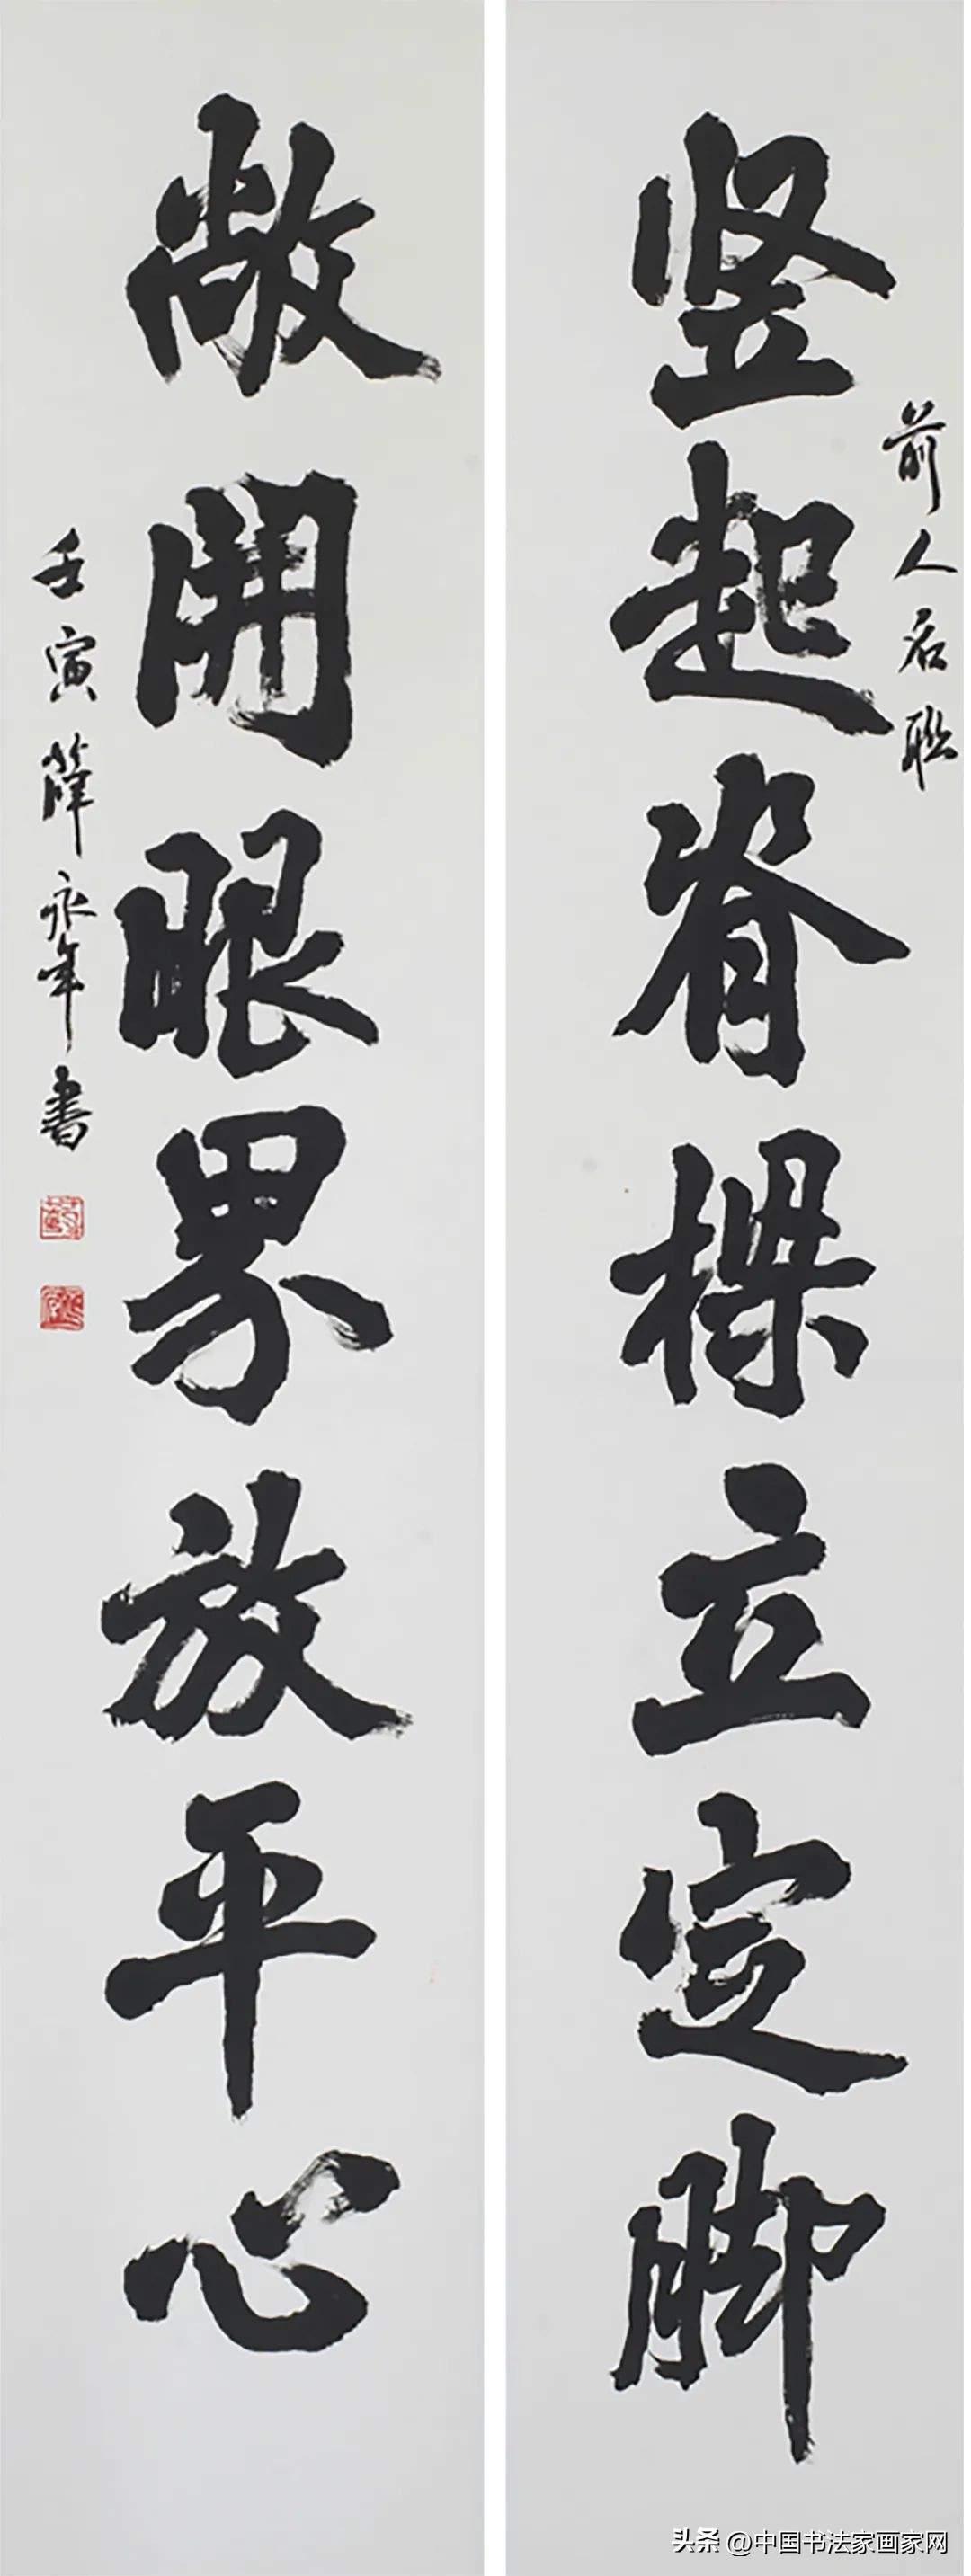 前人名联
竖起脊樑立定脚
敞開眼界放平心
壬寅薛永年書
头条 @中国书法家画家网